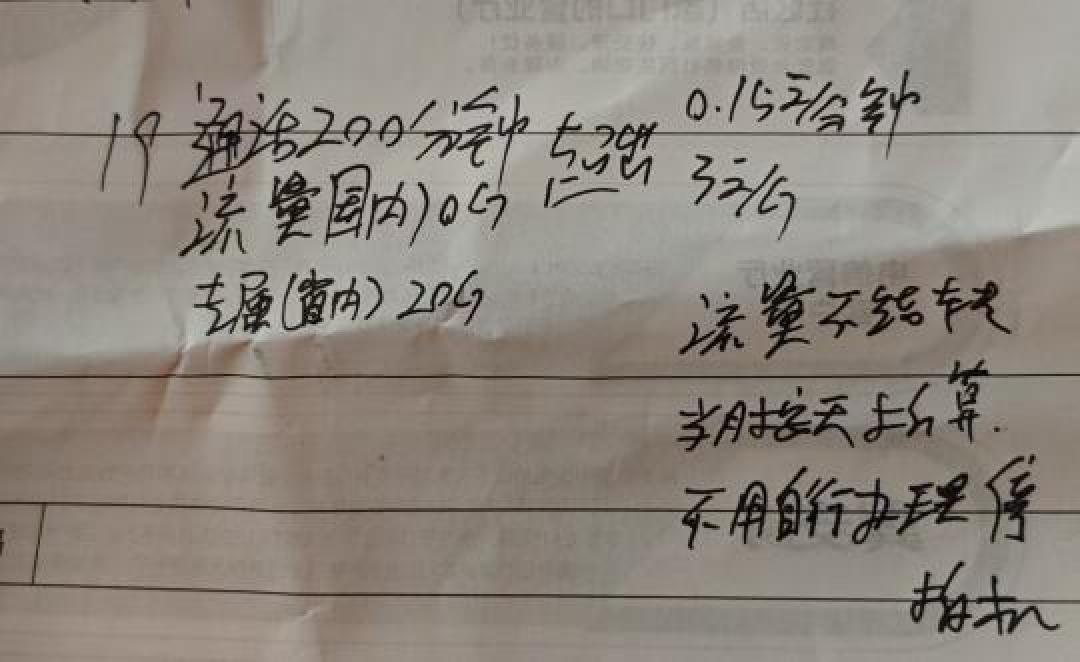 19 通话200分钟 超 0.15元/分钟
流量国内10G 3元/G
专属(省内)20G
流量不结转
当月按天折算.
不用自行办理停
报机